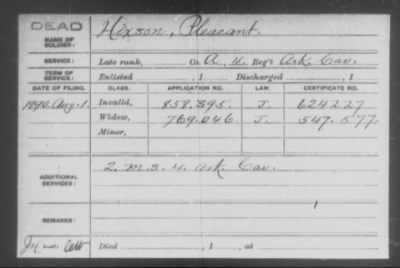 DEAD
NAME OF SOLDIER: Hixson, Pleasant.
SERVICE: Late rank, Co. A, 4. Reg't Ark. Cav.
TERM OF SERVICE: Enlisted , 1 Discharged , 1
DATE OF FILING. CLASS. APPLICATION NO. LAW. CERTIFICATE NO.
1890. Aug. 1. Invalid, 858.895. J. 624227
Widow, 769.046 J. 547.577.
Minor,
ADDITIONAL SERVICES: 2. M.S. 4. Ark. Cav.
REMARKS:
Died , 1 , at